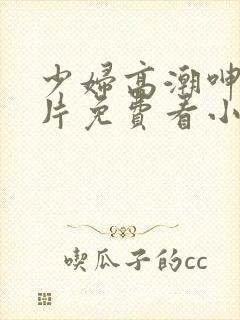 少婦高潮呻
片免費看小
喫瓜子的cc